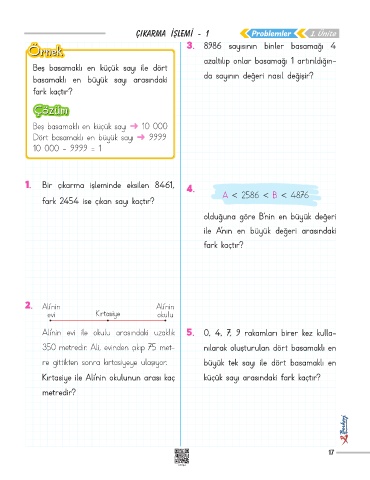 ÇIKARMA İŞLEMİ - 1
Problemler
1. Ünite
Örnek
Beş basamaklı en küçük sayı ile dört
basamaklı en büyük sayı arasındaki
fark kaçtır?
Çözüm
Beş basamaklı en küçük sayı ➜ 10 000
Dört basamaklı en büyük sayı ➜ 9999
10 000 - 9999 = 1
1. Bir çıkarma işleminde eksilen 8461,
fark 2454 ise çıkan sayı kaçtır?
2. Ali'nin evi
Kırtasiye
Ali'nin okulu
Ali'nin evi ile okulu arasındaki uzaklık
350 metredir. Ali, evinden çıkıp 75 met-
re gittikten sonra kırtasiyeye ulaşıyor.
Kırtasiye ile Ali'nin okulunun arası kaç
metredir?
3. 8986 sayısının binler basamağı 4
azaltılıp onlar basamağı 1 artırıldığın-
da sayının değeri nasıl değişir?
4. A < 2586 < B < 4876
olduğuna göre B'nin en büyük değeri
ile A'nın en büyük değeri arasındaki
fark kaçtır?
5. 0, 4, 7, 9 rakamları birer kez kulla-
nılarak oluşturulan dört basamaklı en
büyük tek sayı ile dört basamaklı en
küçük sayı arasındaki fark kaçtır?
17